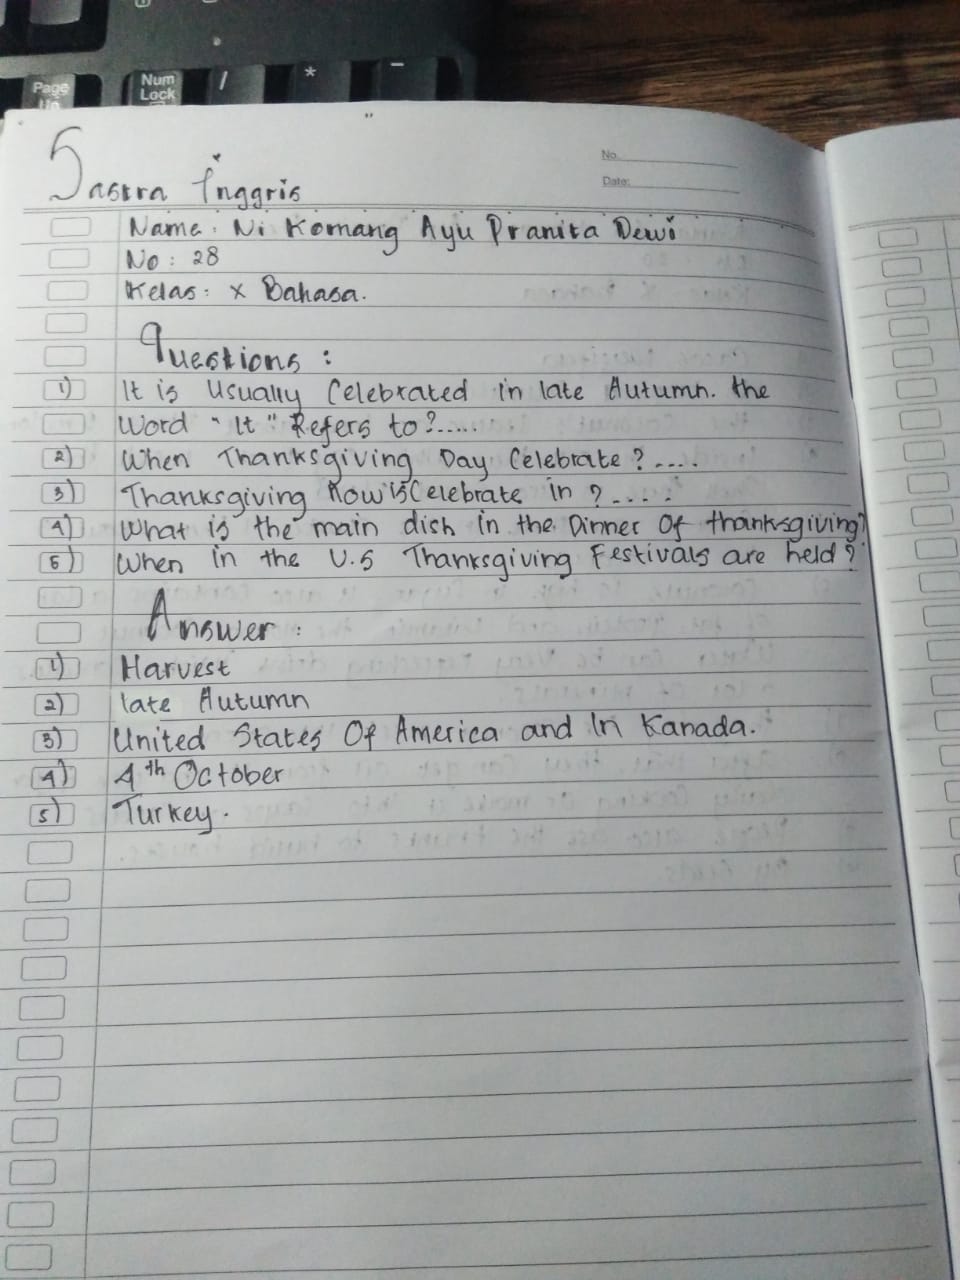 Page
Up
Num
Lock
/
*
-
Sastra Inggris
No.
Date:
Name : Ni Komang Ayu Pranita Dewi
No : 28
Kelas : X Bahasa.
Questions :
1) It is Usually Celebrated in late Autumn. the
Word "It" Refers to?.....
2) When Thanksgiving Day Celebrate?....
3) Thanksgiving Now is Celebrate in ?.....
4) What is the main dish in the Dinner Of thanksgiving?
5) When in the U.S Thanksgiving Festivals are held?
Answer :
1) Harvest
2) late Autumn
3) United States Of America and In Kanada.
4) 4th October
5) Turkey.